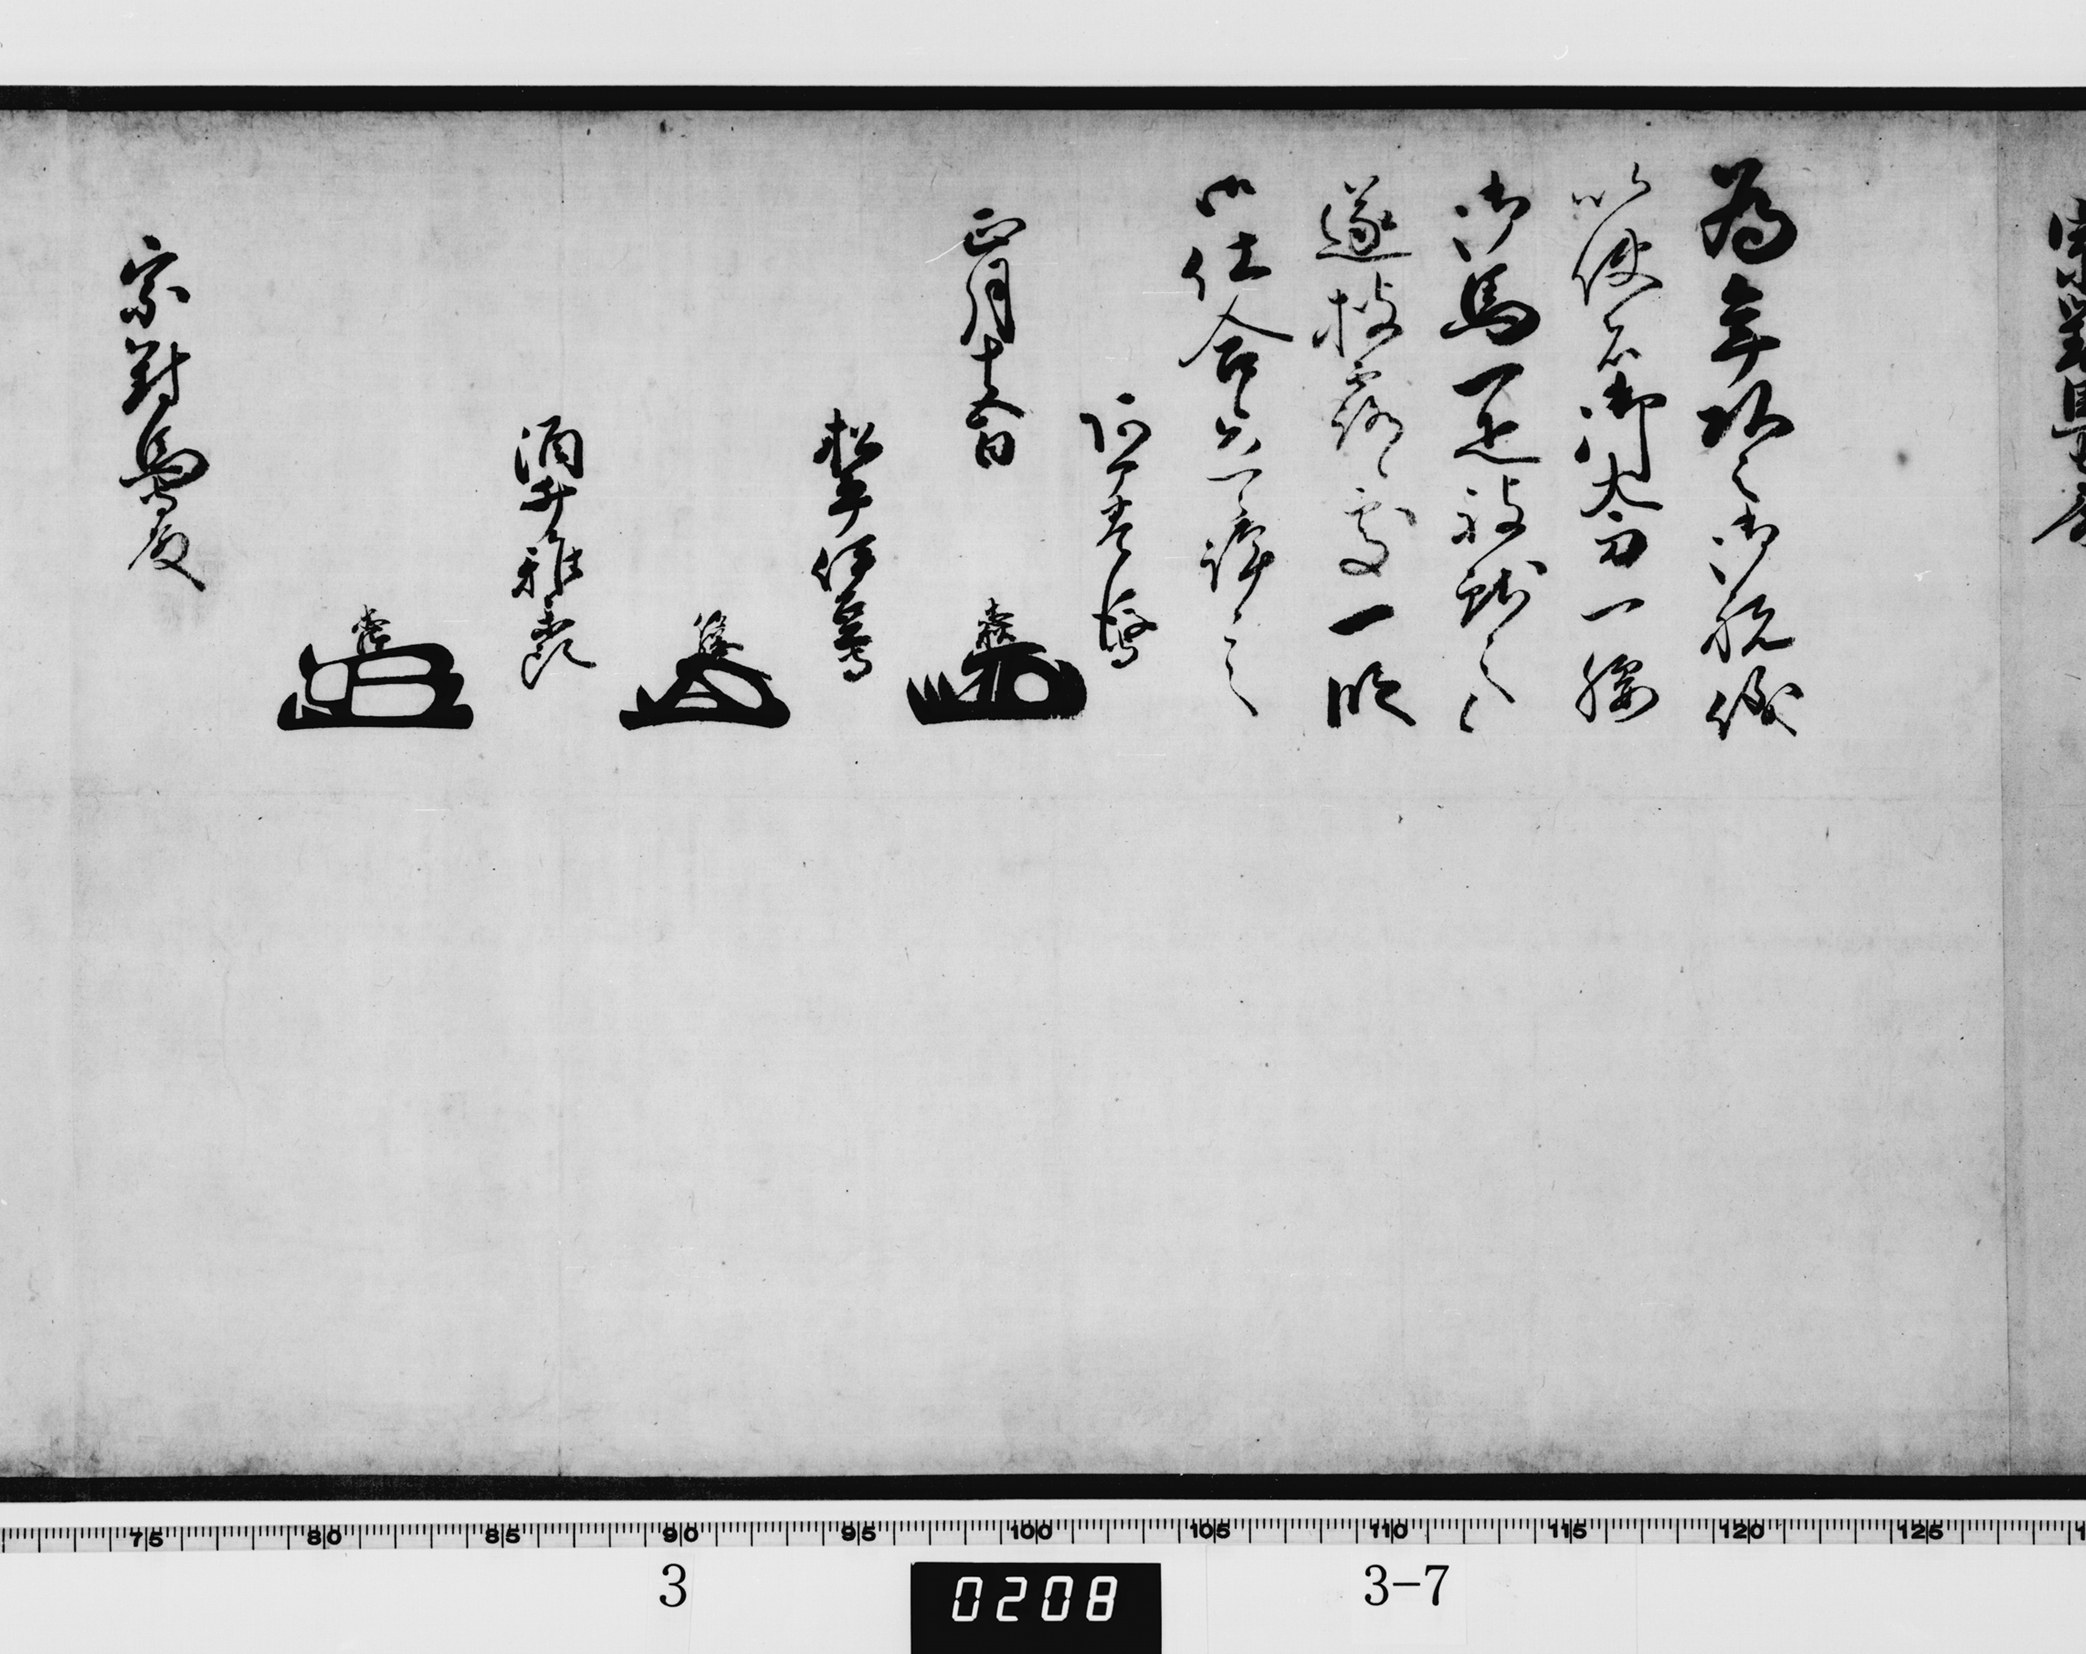 宗對馬守殿
為年頭之御祝儀
以使者御太刀一腰
御馬一疋被献之候
遂披露候處一段
御仕合候恐々謹言
阿部豊後守
正月十五日
忠秋
松平伊豆守
信綱
酒井雅楽頭
忠清
宗對馬守殿
75 80 85 90 95 100 105 110 115 120 125
3
0208
3-7